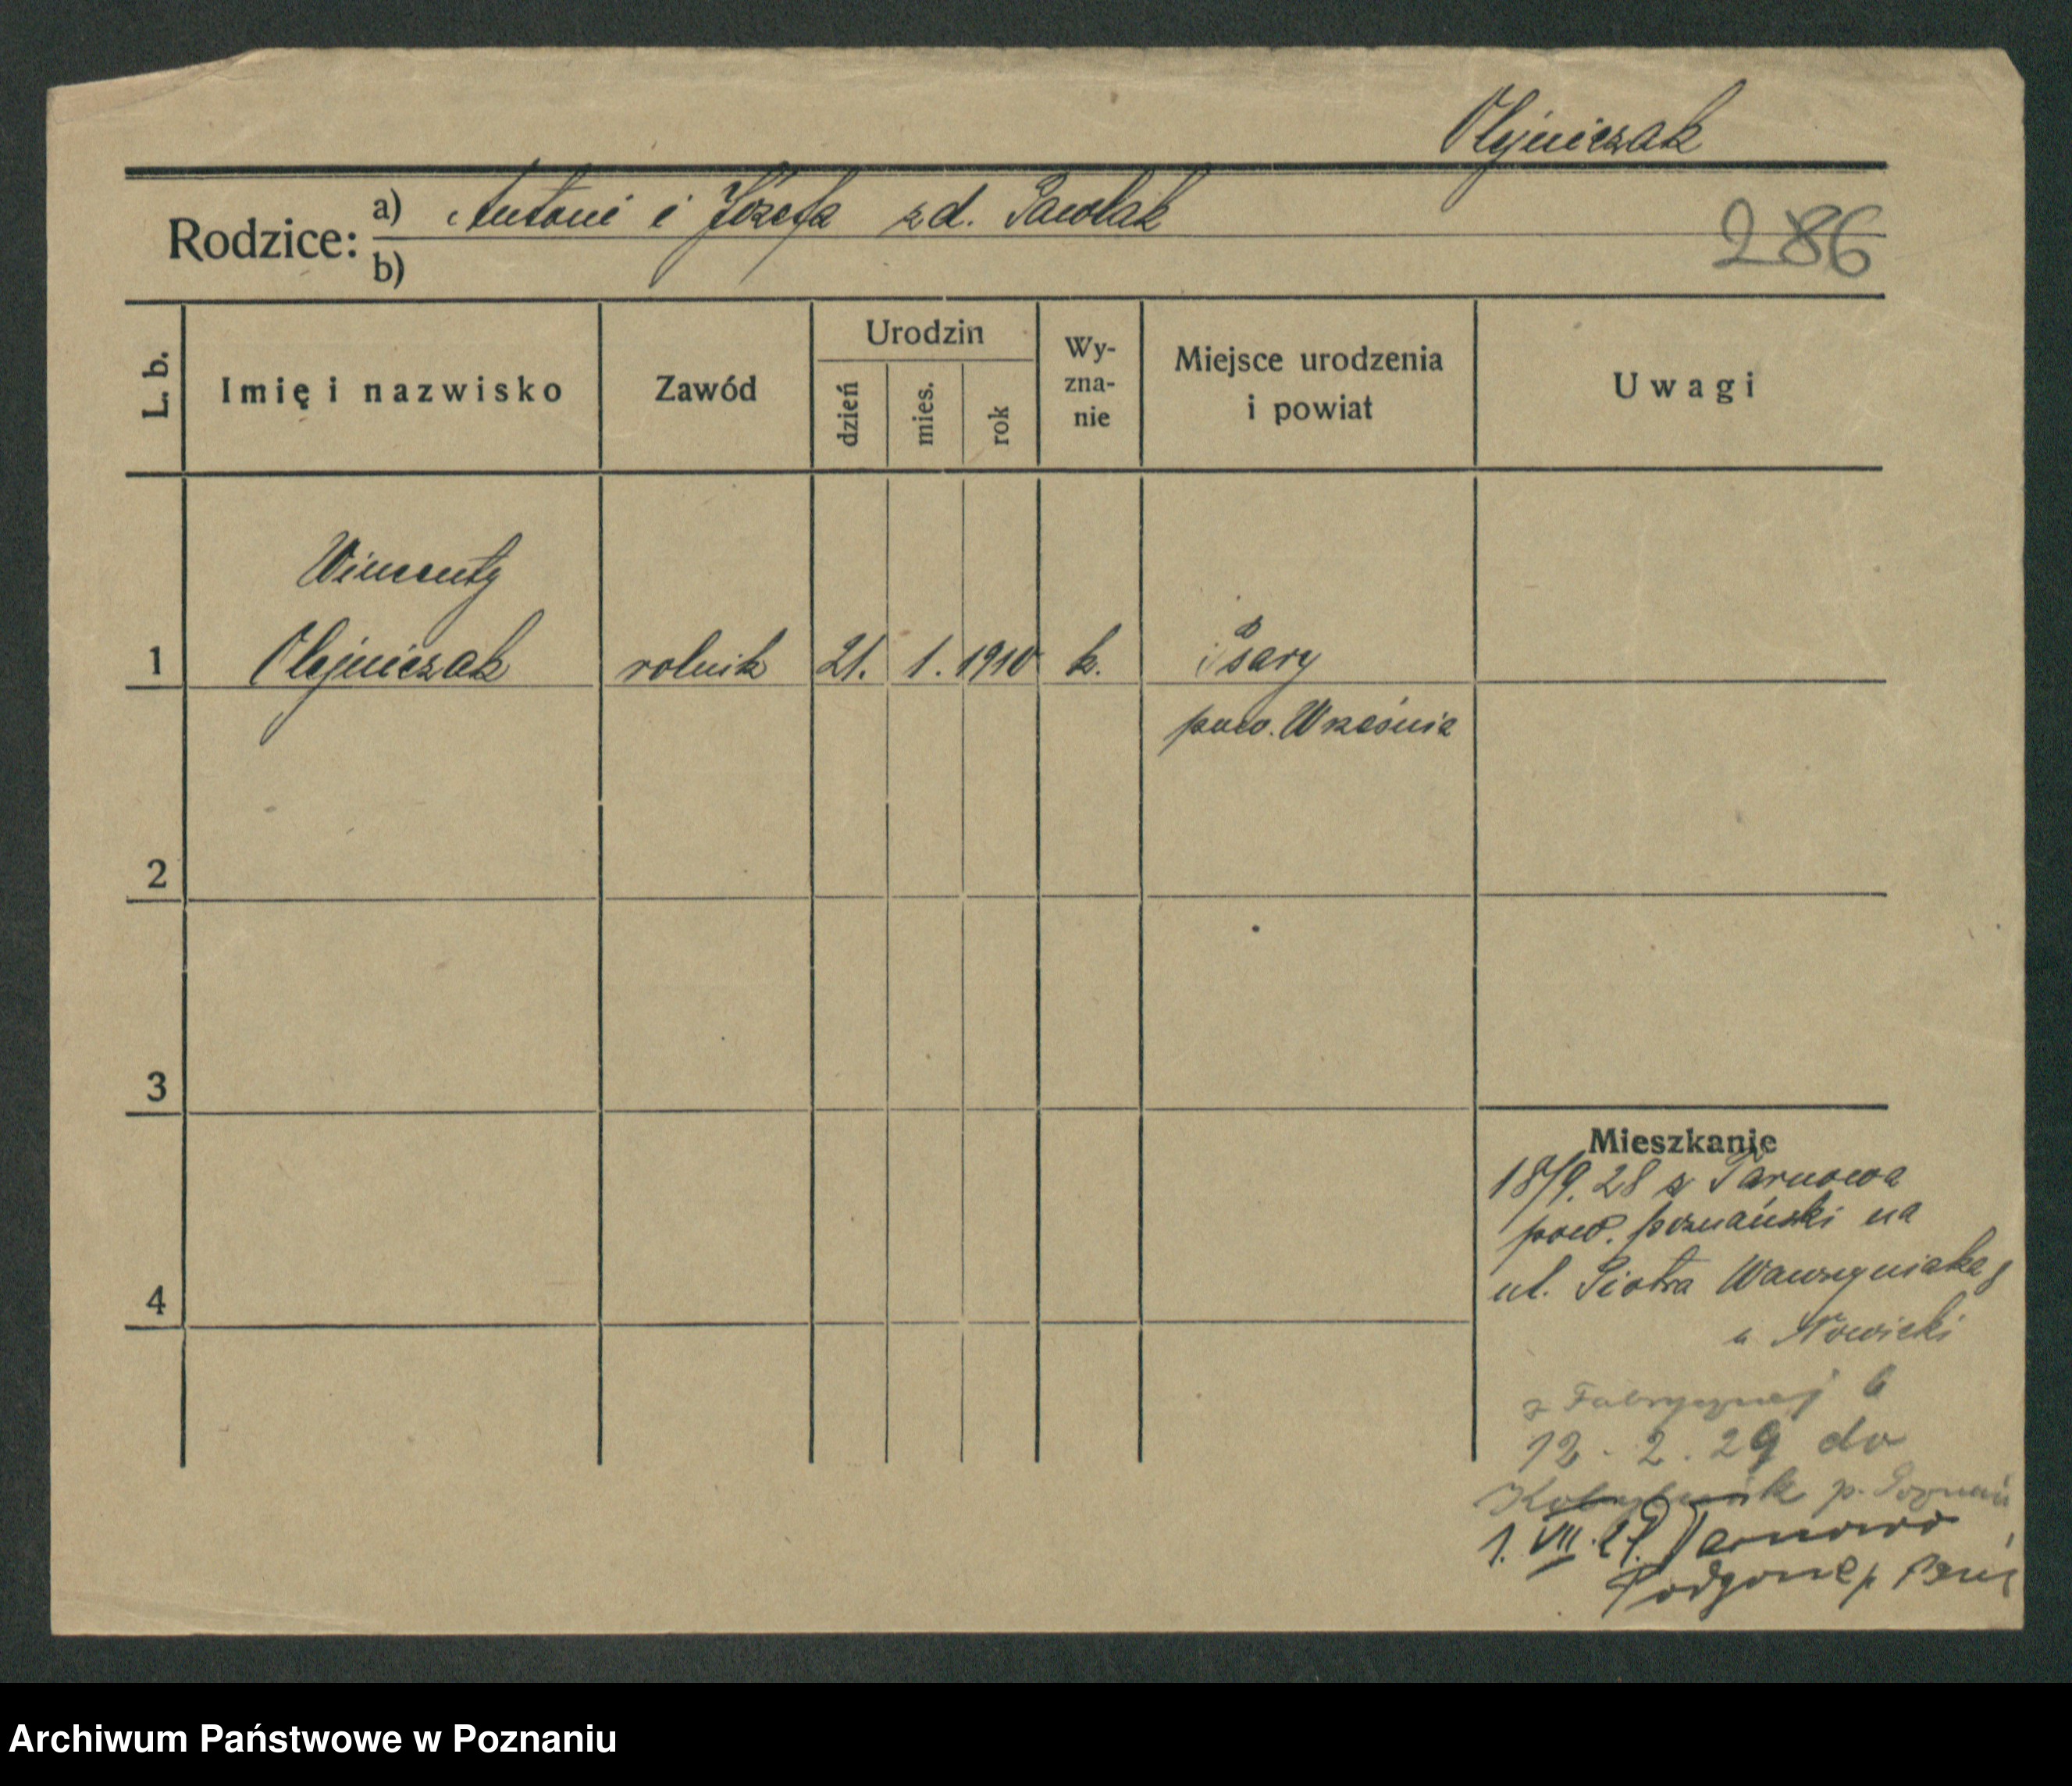 Olejniczak
Rodzice: a) Antoni i Józefa z d. Pawolak
286
b)
L. b.
Imię i nazwisko
Zawód
Urodzin
dzień
mies.
rok
Wy-
zna-
nie
Miejsce urodzenia
i powiat
Uwagi
Wincenty
1 Olejniczak rolnik 21. 1. 1910 k. Psary
pow. Września
2
3
4
Mieszkanie
18/9. 28 z Tarnowa
pow. poznański na
ul. Piotra Wawrzyniaka
u Nowicki
z Fabrycznej 6
12. 2. 29 do
p. Poznań
1. VII. Tarnowo
Podgórne p.
Archiwum Państwowe w Poznaniu